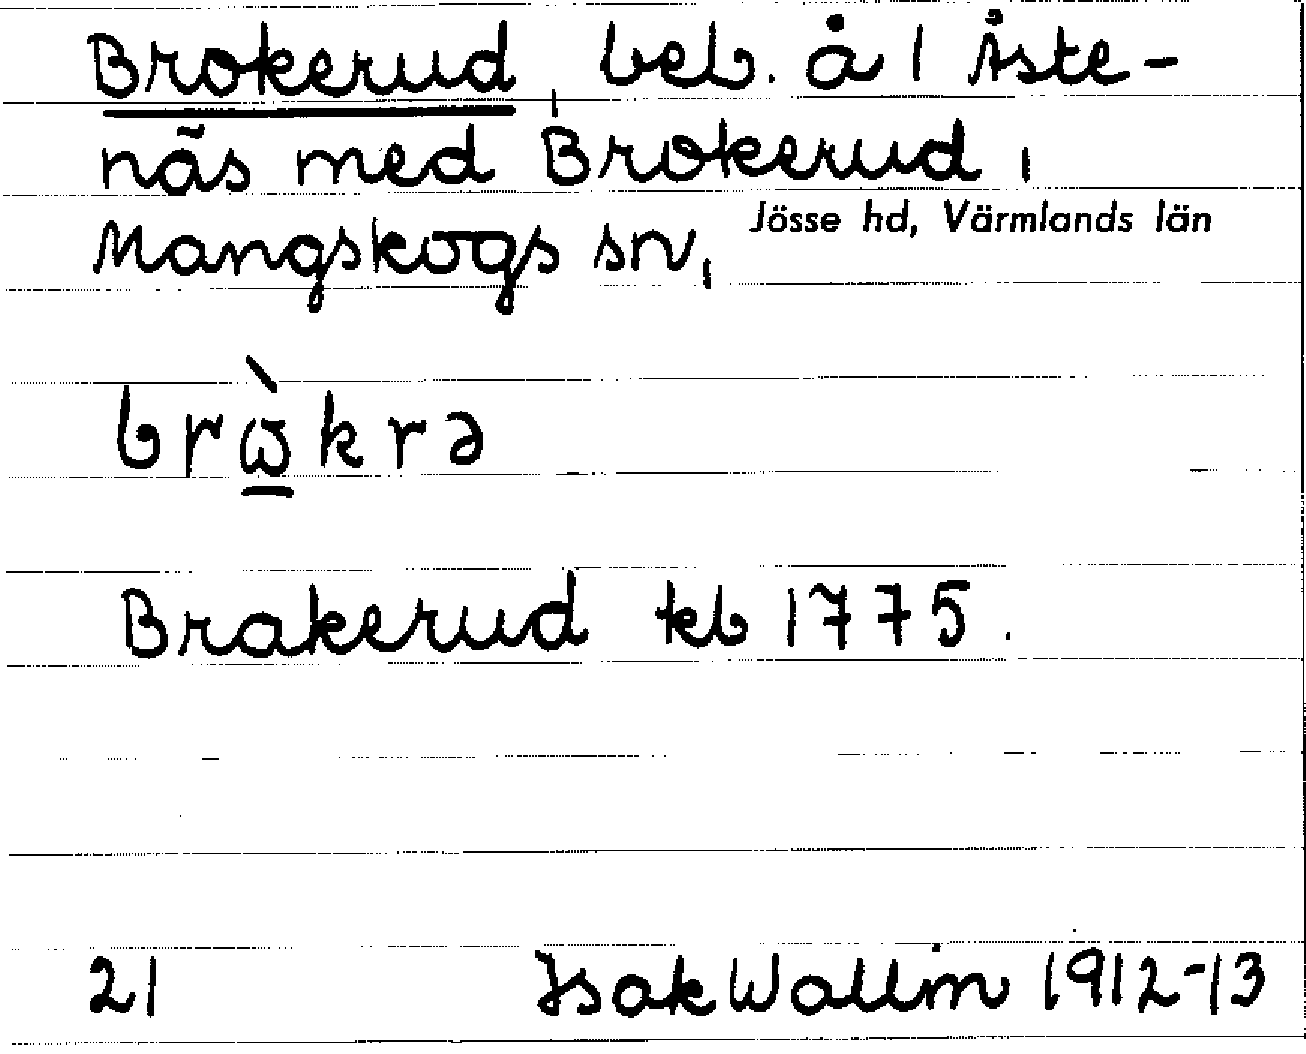 Brokerud, beb. å 1 Åste-
näs med Brokerud,
Mangskogs sn, Jösse hd, Värmlands län
brὼ̠krə
Brakerud kb 1775.
21 Isak Wallin 1912-13